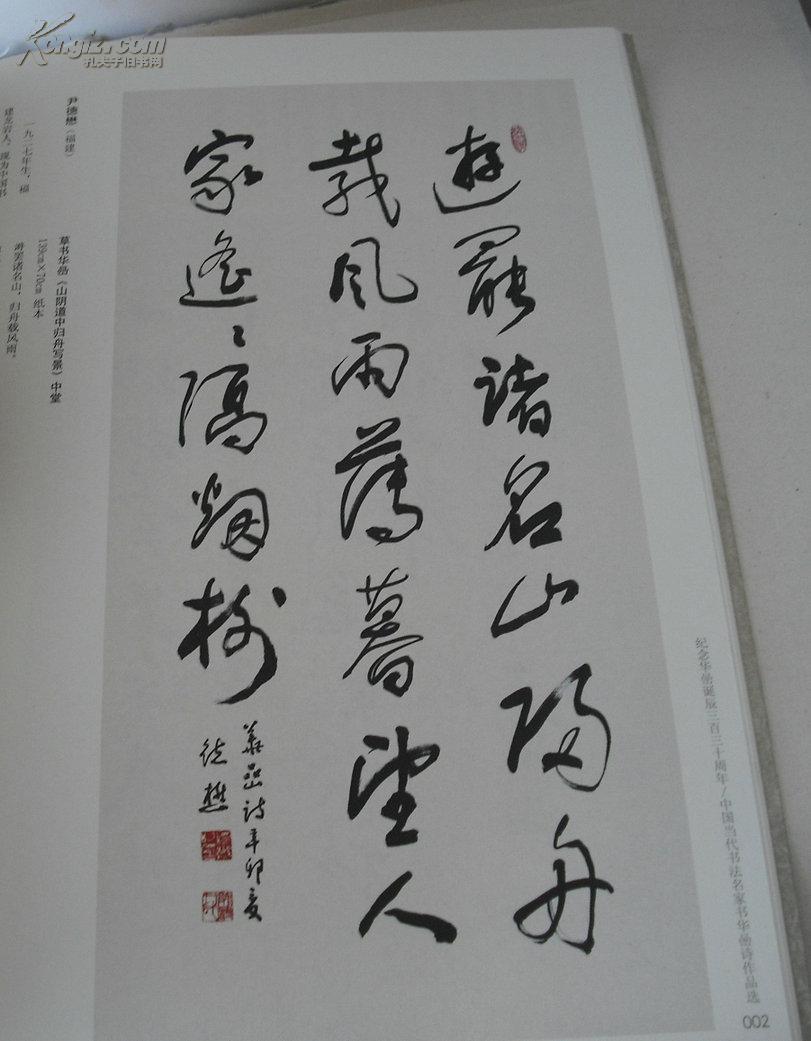 Kongfz.com
孔夫子旧书网
遊罷諸名山歸舟
載風雨薄暮望人
家遙〻隔烟樹
華嵒詩辛卯夏
德懋
尹德懋（福建）
一九二七年生，福
建龙岩人。现为中国书
草书华嵒《山阴道中归舟写景》中堂
139cm×70cm 纸本
游罢诸名山，归舟载风雨。
纪念华嵒诞辰三百三十周年/中国当代书法名家书华嵒诗作品选
002